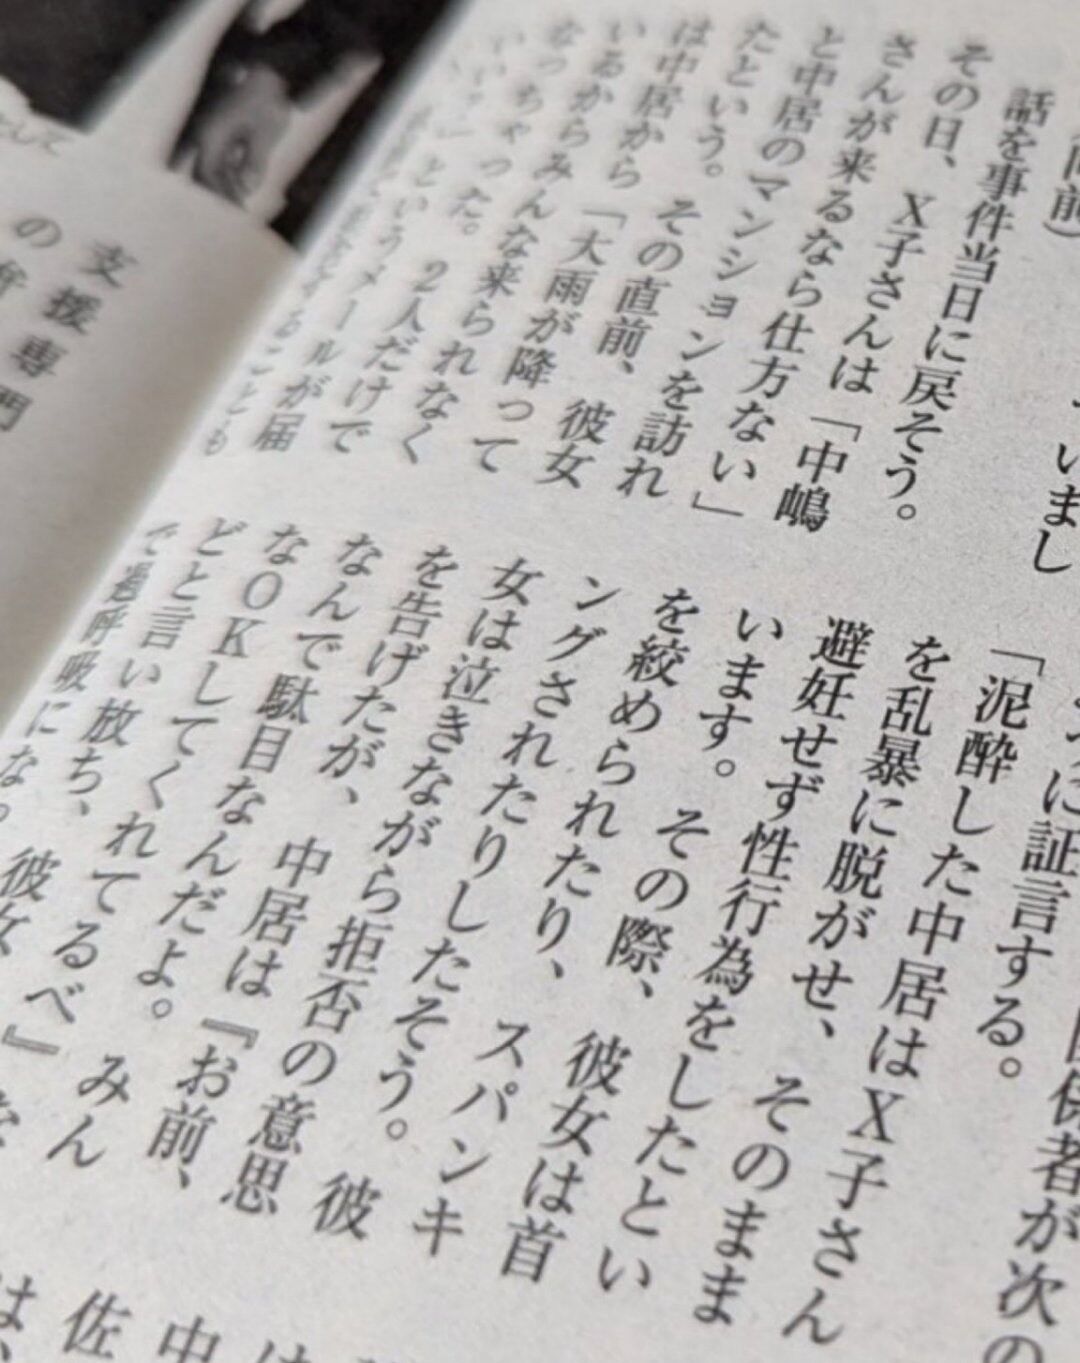 同前)
いまし
話を事件当日に戻そう。
その日、X子さんは「中嶋
さんが来るなら仕方ない」
と中居のマンションを訪れ
たという。その直前、彼女
は中居から「大雨が降って
いるからみんな来られなく
なっちゃった。2人だけで
というメールが届
ることも
ように証言する。
係者が次の
「泥酔した中居はX子さん
を乱暴に脱がせ、そのまま
避妊せず性行為をしたとい
います。その際、彼女は首
を絞められたり、スパンキ
ングされたりしたそう。彼
女は泣きながら拒否の意思
を告げたが、中居は『お前、
なんで駄目なんだよ。みん
なOKしてくれてるべ』
どと言い放ち、彼女
で過呼吸にな
中
佐
は、
して
支援専門
の弁